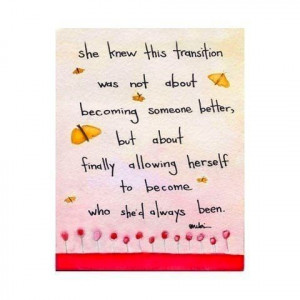 she knew this transition
was not about
becoming someone better,
but about
finally allowing herself
to become
who she'd always been.